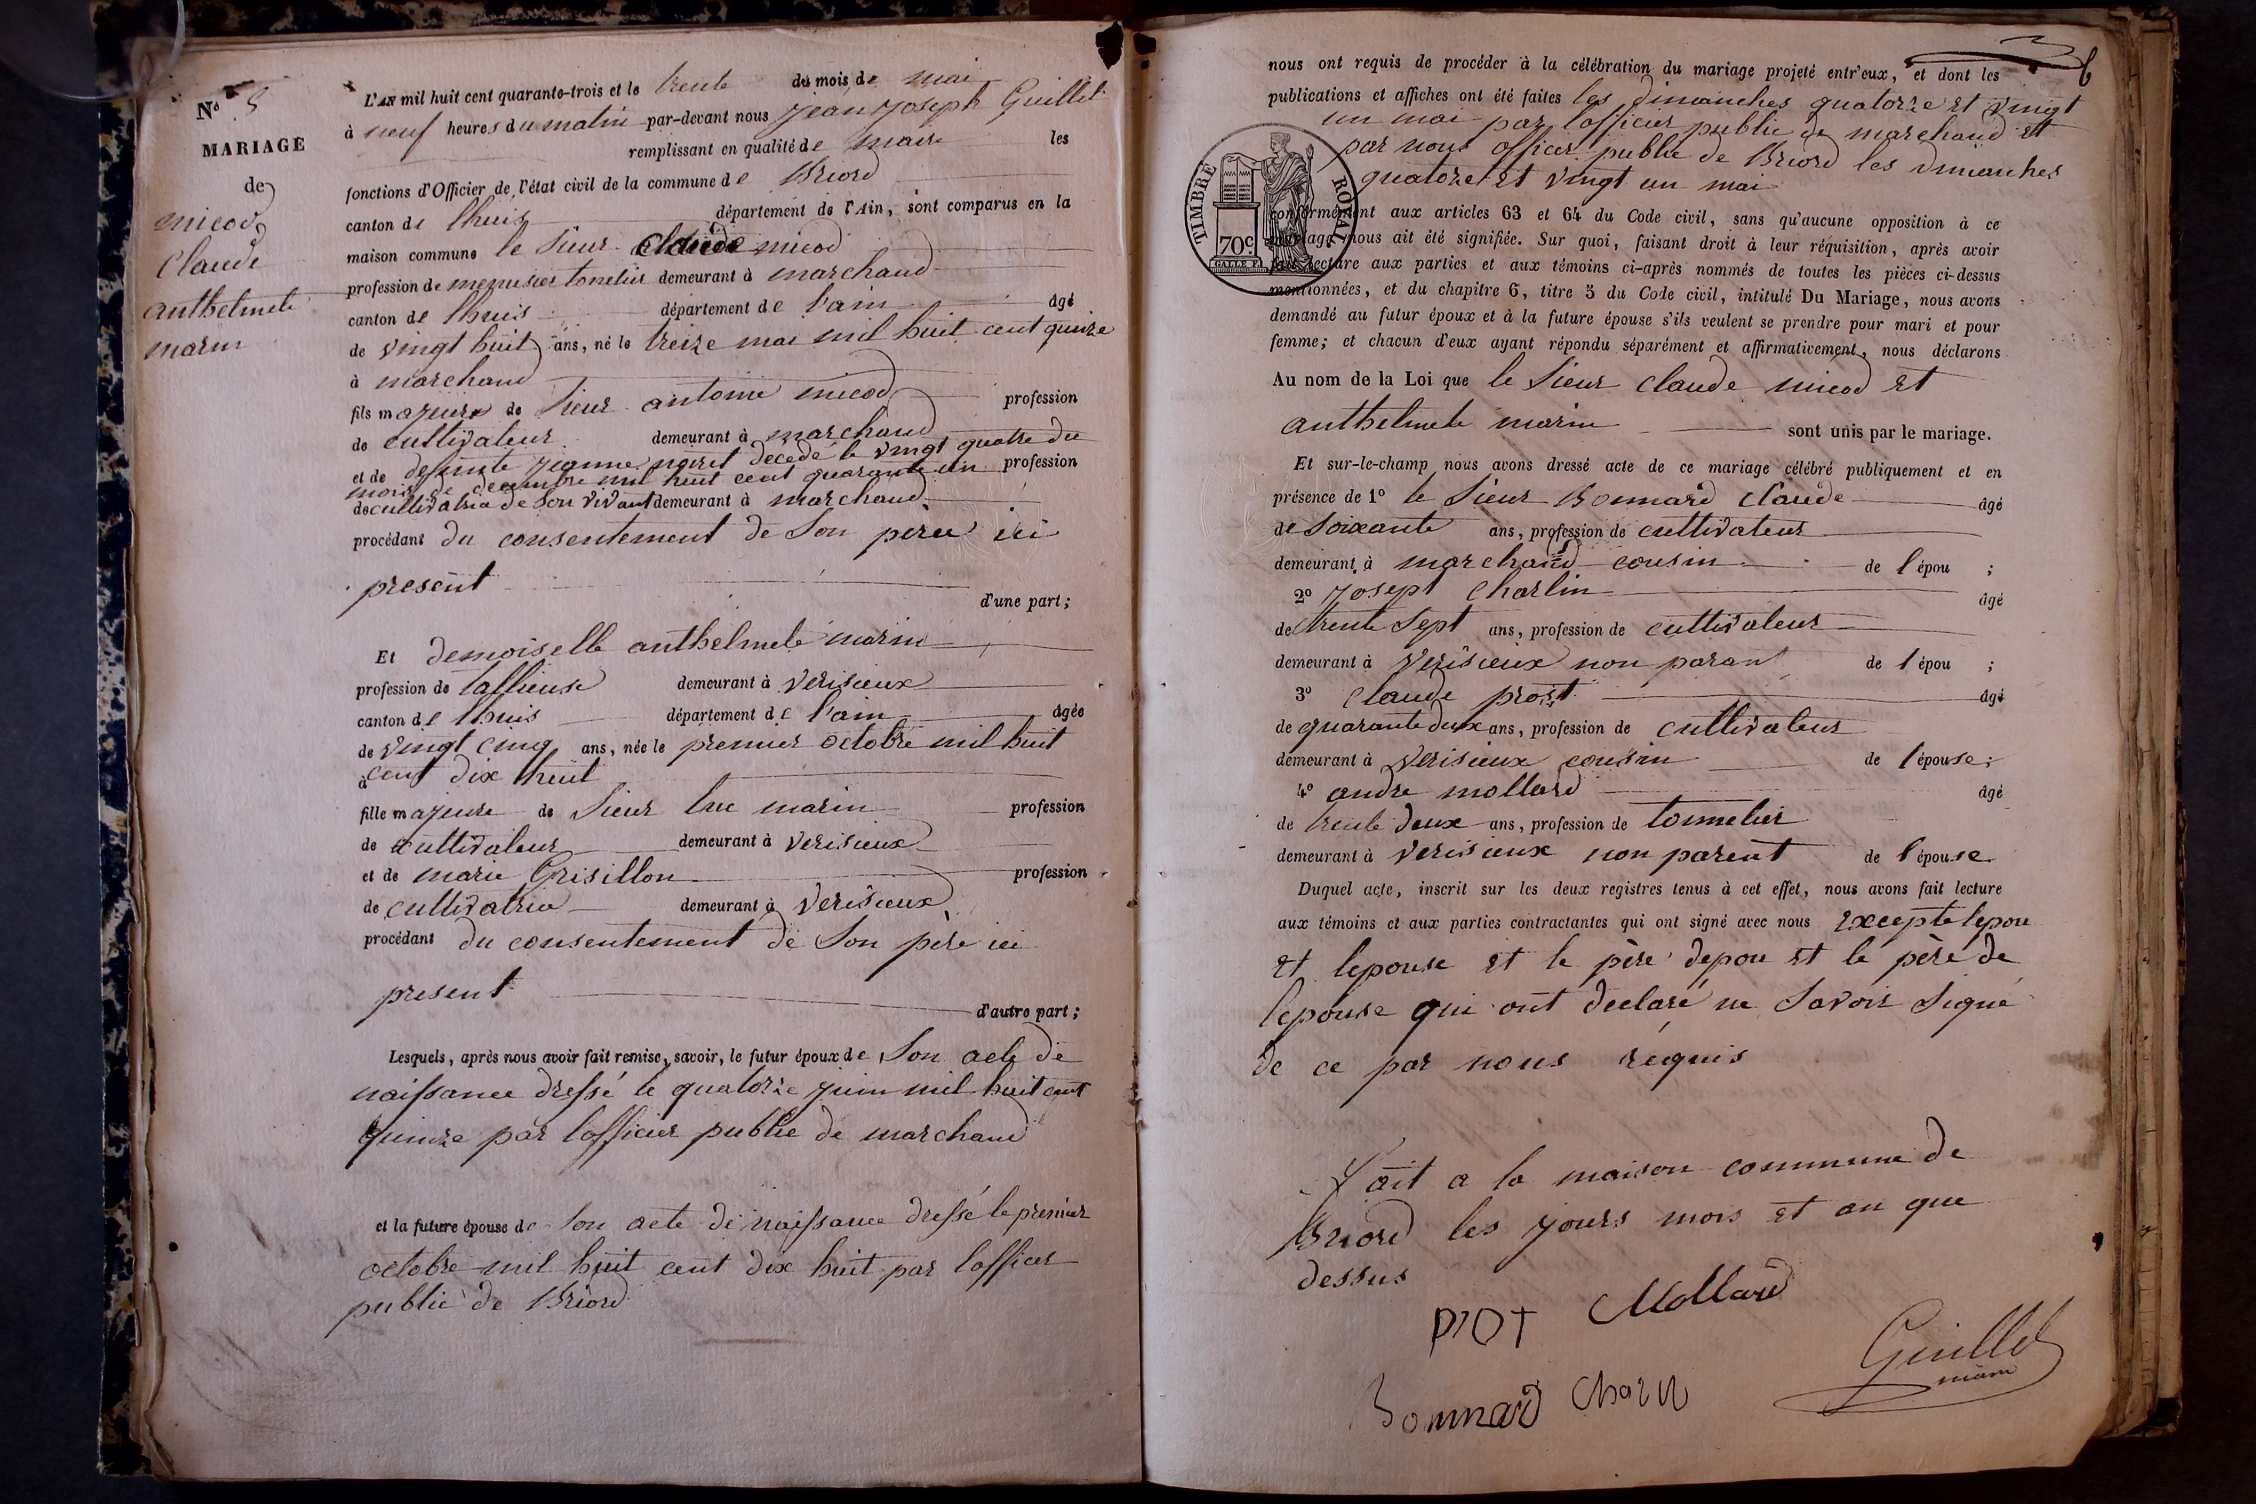 N° 5
MARIAGE
de
micod
Claude
anthelmete
marin
L'AN mil huit cent quarante-trois et le trente du mois de mai
à neuf heures du matin par-devant nous Jean Joseph Guillet
remplissant en qualité de maire les
fonctions d'Officier de l'état civil de la commune de Briord
canton de lhuis département de l'Ain, sont comparus en la
maison commune le Sieur Claude micod
profession de menusier tonelier demeurant à marchand
canton de lhuis département de l'ain âgé
de vingt huit ans, né le treize mai mil huit cent quinze
à marchand
fils majeur de Sieur antoine micod profession
de cultivateur demeurant à marchand
et de defunte jeanne noiret decedé le vingt quatre du
mois de decembre mil huit cent quarante un profession
de cultivatrice de Son vivant demeurant à marchand
procédant du consentement de Son père ici
present
d'une part;
Et demoiselle anthelmete marin
profession de tallieuse demeurant à verisieux
canton de lhuis département de l'ain âgée
de vingt cinq ans, née le premier octobre mil huit
à cent dix huit
fille majeure de Sieur luc marin profession
de cultivateur demeurant à verisieux
et de marie Grisillon profession
de cultivatrice demeurant à verisieux
procédant du consentement de Son père ici
present
d'autre part;
Lesquels, après nous avoir fait remise, savoir, le futur époux de Son acte de
naissance dressé le quatorze juin mil huit cent
quinze par lofficier public de marchand
et la future épouse de Son acte de naissance dressé le premier
octobre mil huit cent dix huit par lofficier
public de Briord
6
nous ont requis de procéder à la célébration du mariage projeté entr'eux, et dont les
publications et affiches ont été faites les dimanches quatorze et vingt
un mai par lofficier public de marchand et
par nous officier public de Briord les dimanches
quatorze et vingt un mai
TIMBRE ROYAL
70c
conformément aux articles 63 et 64 du Code civil, sans qu'aucune opposition à ce
mariage nous ait été signifiée. Sur quoi, faisant droit à leur réquisition, après avoir
fait lecture aux parties et aux témoins ci-après nommés de toutes les pièces ci-dessus
mentionnées, et du chapitre 6, titre 5 du Code civil, intitulé Du Mariage, nous avons
demandé au futur époux et à la future épouse s'ils veulent se prendre pour mari et pour
femme; et chacun d'eux ayant répondu séparément et affirmativement, nous déclarons
Au nom de la Loi que le Sieur Claude micod et
anthelmete marin sont unis par le mariage.
Et sur-le-champ nous avons dressé acte de ce mariage célébré publiquement et en
présence de 1° le Sieur Bonnard Claude âgé
de Soixante ans, profession de cultivateur
demeurant à marchand cousin de l'épou ;
2° Josept Charlin âgé
de trente Sept ans, profession de cultivateur
demeurant à verisieux non parant de l'épou ;
3° Claude prost âgé
de quarante deux ans, profession de cultivateur
demeurant à verisieux cousin de l'épouse;
4° andre mollard âgé
de trente deux ans, profession de tonnelier
demeurant à verisieux non parent de l'épouse
Duquel acte, inscrit sur les deux registres tenus à cet effet, nous avons fait lecture
aux témoins et aux parties contractantes qui ont signé avec nous excepte lepou
et lepouse et le père depou et le père de
lepouse qui ont declaré ne Savoir Signé
de ce par nous requis
Fait a la maison commune de
Briord les jours mois et an que
dessus
prot Mollard
Guillet
maire
Bonnard